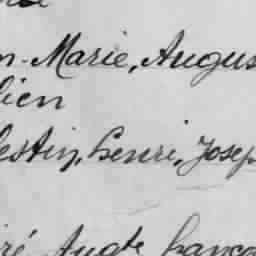 n-Marie, Augus
lien
lestin, henri, Josep
ré Augte franço